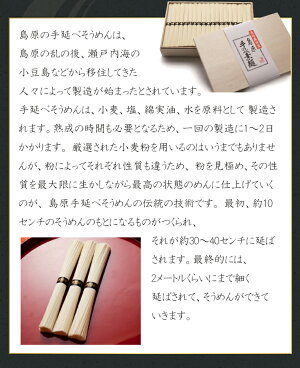 島原の手延べそうめんは、
島原の乱の後、瀬戸内海の
小豆島などから移住してきた
人々によって製造が始まったとされています。
手延べそうめんは、小麦、塩、綿実油、水を原料として 製造さ
れます。熟成の時間も必要となるため、一回の製造に1~2日
かかります。 厳選された小麦粉を用いるのはいうまでもありませ
んが、粉によってそれぞれ性質も違うため、 粉を見極め、その性
質を最大限に生かしながら最高の状態のめんに仕上げていく
のが、 島原手延べそうめんの伝統の技術です。 最初、約10
センチのそうめんのもとになるものがつくられ、
それが約30~40センチに延ば
されます。最終的には、
2メートルくらいにまで細く
延ばされて、そうめんができて
いきます。
島原
手延素麺